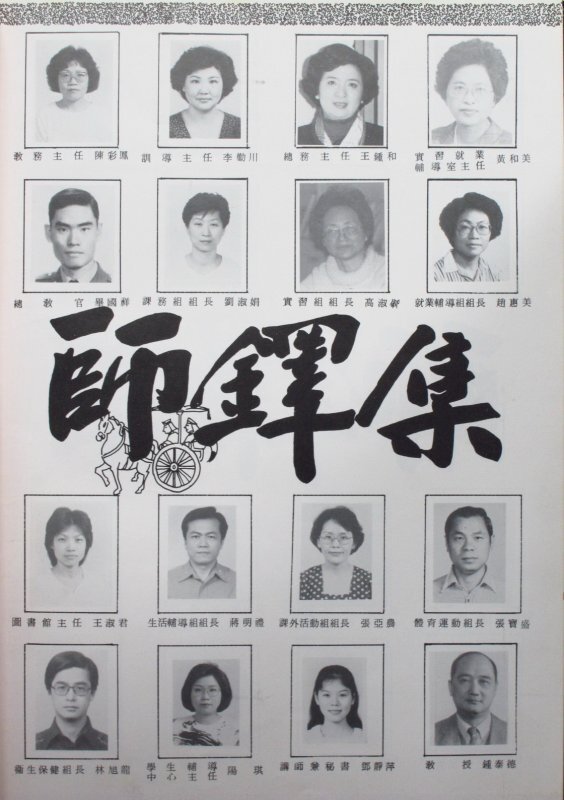 教務主任 陳彩鳳
訓導主任 李勤川
總務主任 王鍾和
實習就業
輔導室主任 黃和美
總教官 畢國祥
課務組組長 劉淑娟
實習組組長 高淑
就業輔導組組長 趙惠美
師鐸集
圖書館主任 王淑君
生活輔導組組長 蔣明禮
課外活動組組長 張亞農
體育運動組長 張寶盛
衛生保健組長 林旭龍
學生輔導
中心主任 陽琪
講師兼秘書 鄧靜萍
教授 鍾泰德